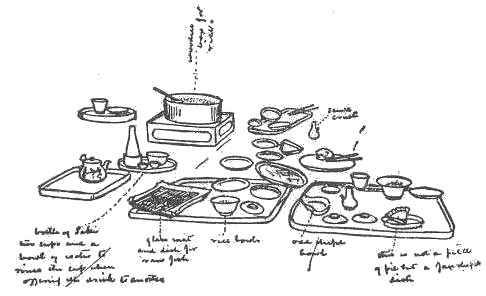 wooden
box for
rice.
sauce
cruet
bottle of Saki
two cups and a
bowl of water to
rinse the cup when
offering you drink to another
glass mat
and dish for
raw fish
rice bowls
odd shaped
bowl
this is not a piece
of pie but a Jap. shaped
dish